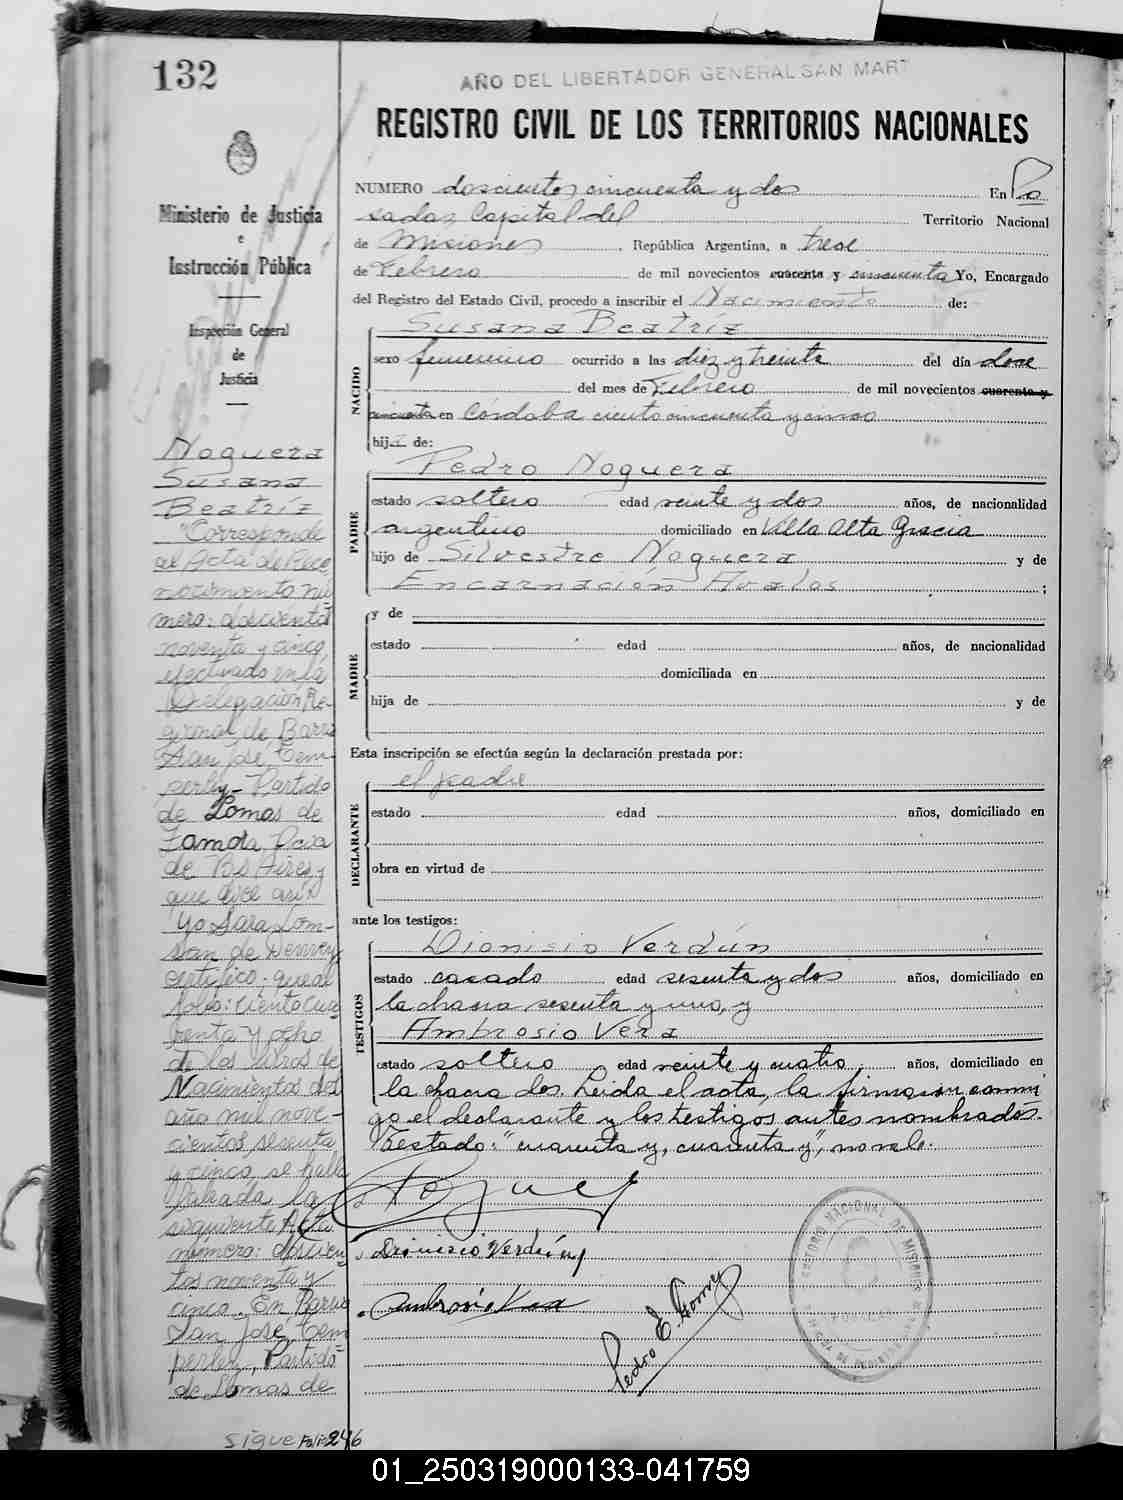 132
AÑO DEL LIBERTADOR GENERAL SAN MART
REGISTRO CIVIL DE LOS TERRITORIOS NACIONALES
Ministerio de Justicia
e
Instrucción Pública
Inspección General
de
Justicia
NUMERO doscientos cincuenta y dos En Po
sadas Capital del Territorio Nacional
de Misiones, República Argentina, a trece
de Febrero de mil novecientos cuarenta y cincuenta Yo, Encargado
del Registro del Estado Civil, procedo a inscribir el Nacimiento de:
NACIDO
Susana Beatríz
sexo femenino ocurrido a las diez y treinta del día doce
del mes de Febrero de mil novecientos cuarenta y
cincuenta en Córdoba ciento cincuenta y cinco
hija de:
PADRE
Pedro Noguera
estado soltero edad veinte y dos años, de nacionalidad
argentino domiciliado en Villa Alta Gracia
hijo de Silvestre Noguera y de
Encarnación Avalos;
MADRE
y de
estado edad años, de nacionalidad
domiciliada en
hija de y de
Esta inscripción se efectúa según la declaración prestada por:
DECLARANTE
el padre
estado edad años, domiciliado en
obra en virtud de
ante los testigos:
TESTIGOS
Dionisio Verdún
estado casado edad sesenta y dos años, domiciliado en
la chacra sesenta y uno, y
Ambrosio Vera
estado soltero edad veinte y cuatro años, domiciliado en
la chacra dos. Leida el acta, la firmaron conmi
go el declarante y los testigos antes nombrados.
Testado: "cuarenta y, cuarenta y", no vale.
Dionisio Verdún
Ambrosio Vera
Pedro E. Gomez
Noguera
Susana
Beatríz
"Corresponde
al Acta de Reco
nocimiento nú
mero: doscientos
noventa y cinco
efectuado en la
Delegación Re-
gional de Barrio
San José, Tem-
perley - Partido
de Lomas de
Zamora, Pcia
de Bs Aires y
que dice así:
"Yo Sara Lom-
certifico: que al
folio: ciento cua
renta y ocho
de los libros de
Nacimientos del
año mil nove-
cientos sesenta
y cinco, se halla
labrada la
siguiente Acta
número: doscien
tos noventa y
cinco. En Barrio
San José, Tem
perley, Partido
de Lomas de
sigue Folio 246
01_250319000133-041759